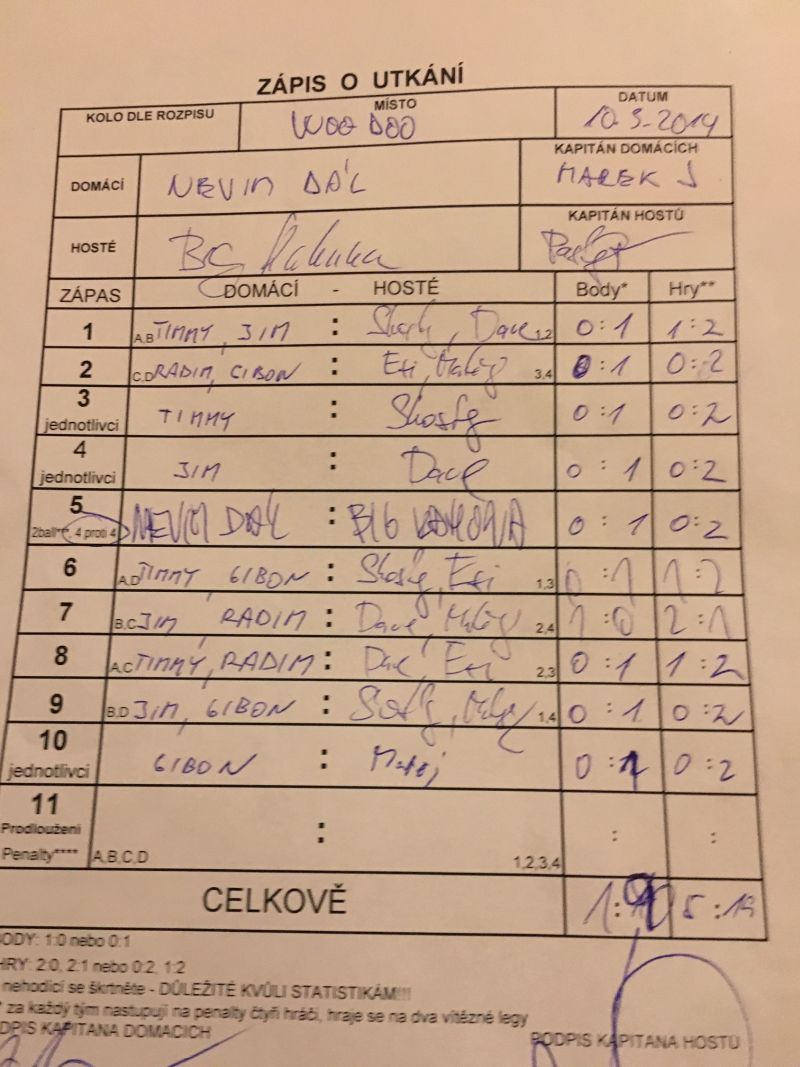 ZÁPIS O UTKÁNÍ
KOLO DLE ROZPISU MÍSTO DATUM
WOO DOO 10.3-2014
DOMÁCÍ NEVIM DÁL KAPITÁN DOMÁCÍCH
MAREK J
HOSTÉ KAPITÁN HOSTŮ
ZÁPAS DOMÁCÍ - HOSTÉ Body* Hry**
1 A,B TIMMY, JIM : Dave 1,2 0:1 1:2
2 C,D RADIM, GIBON : 3,4 0:1 0:2
3 jednotlivci TIMMY : 0:1 0:2
4 jednotlivci JIM : Dave 0:1 0:2
5 2ball***, 4 proti 4 NEVIM DÁL : BIG 0:1 0:2
6 A,D TIMMY, GIBON : 1,3 0:1 1:2
7 B,C JIM, RADIM : Dave, 2,4 1:0 2:1
8 A,C TIMMY, RADIM : 2,3 0:1 1:2
9 B,D JIM, GIBON : 1,4 0:1 0:2
10 jednotlivci GIBON : Matěj 0:1 0:2
11 Prodloužení : : :
Penalty**** A,B,C,D 1,2,3,4
CELKOVĚ 1:9 5:19
BODY: 1:0 nebo 0:1
HRY: 2:0, 2:1 nebo 0:2, 1:2
nehodící se škrtněte - DŮLEŽITÉ KVŮLI STATISTIKÁM!!!
* za každý tým nastupují na penalty čtyři hráči, hraje se na dva vítězné legy
DPIS KAPITÁNA DOMÁCÍCH PODPIS KAPITÁNA HOSTŮ